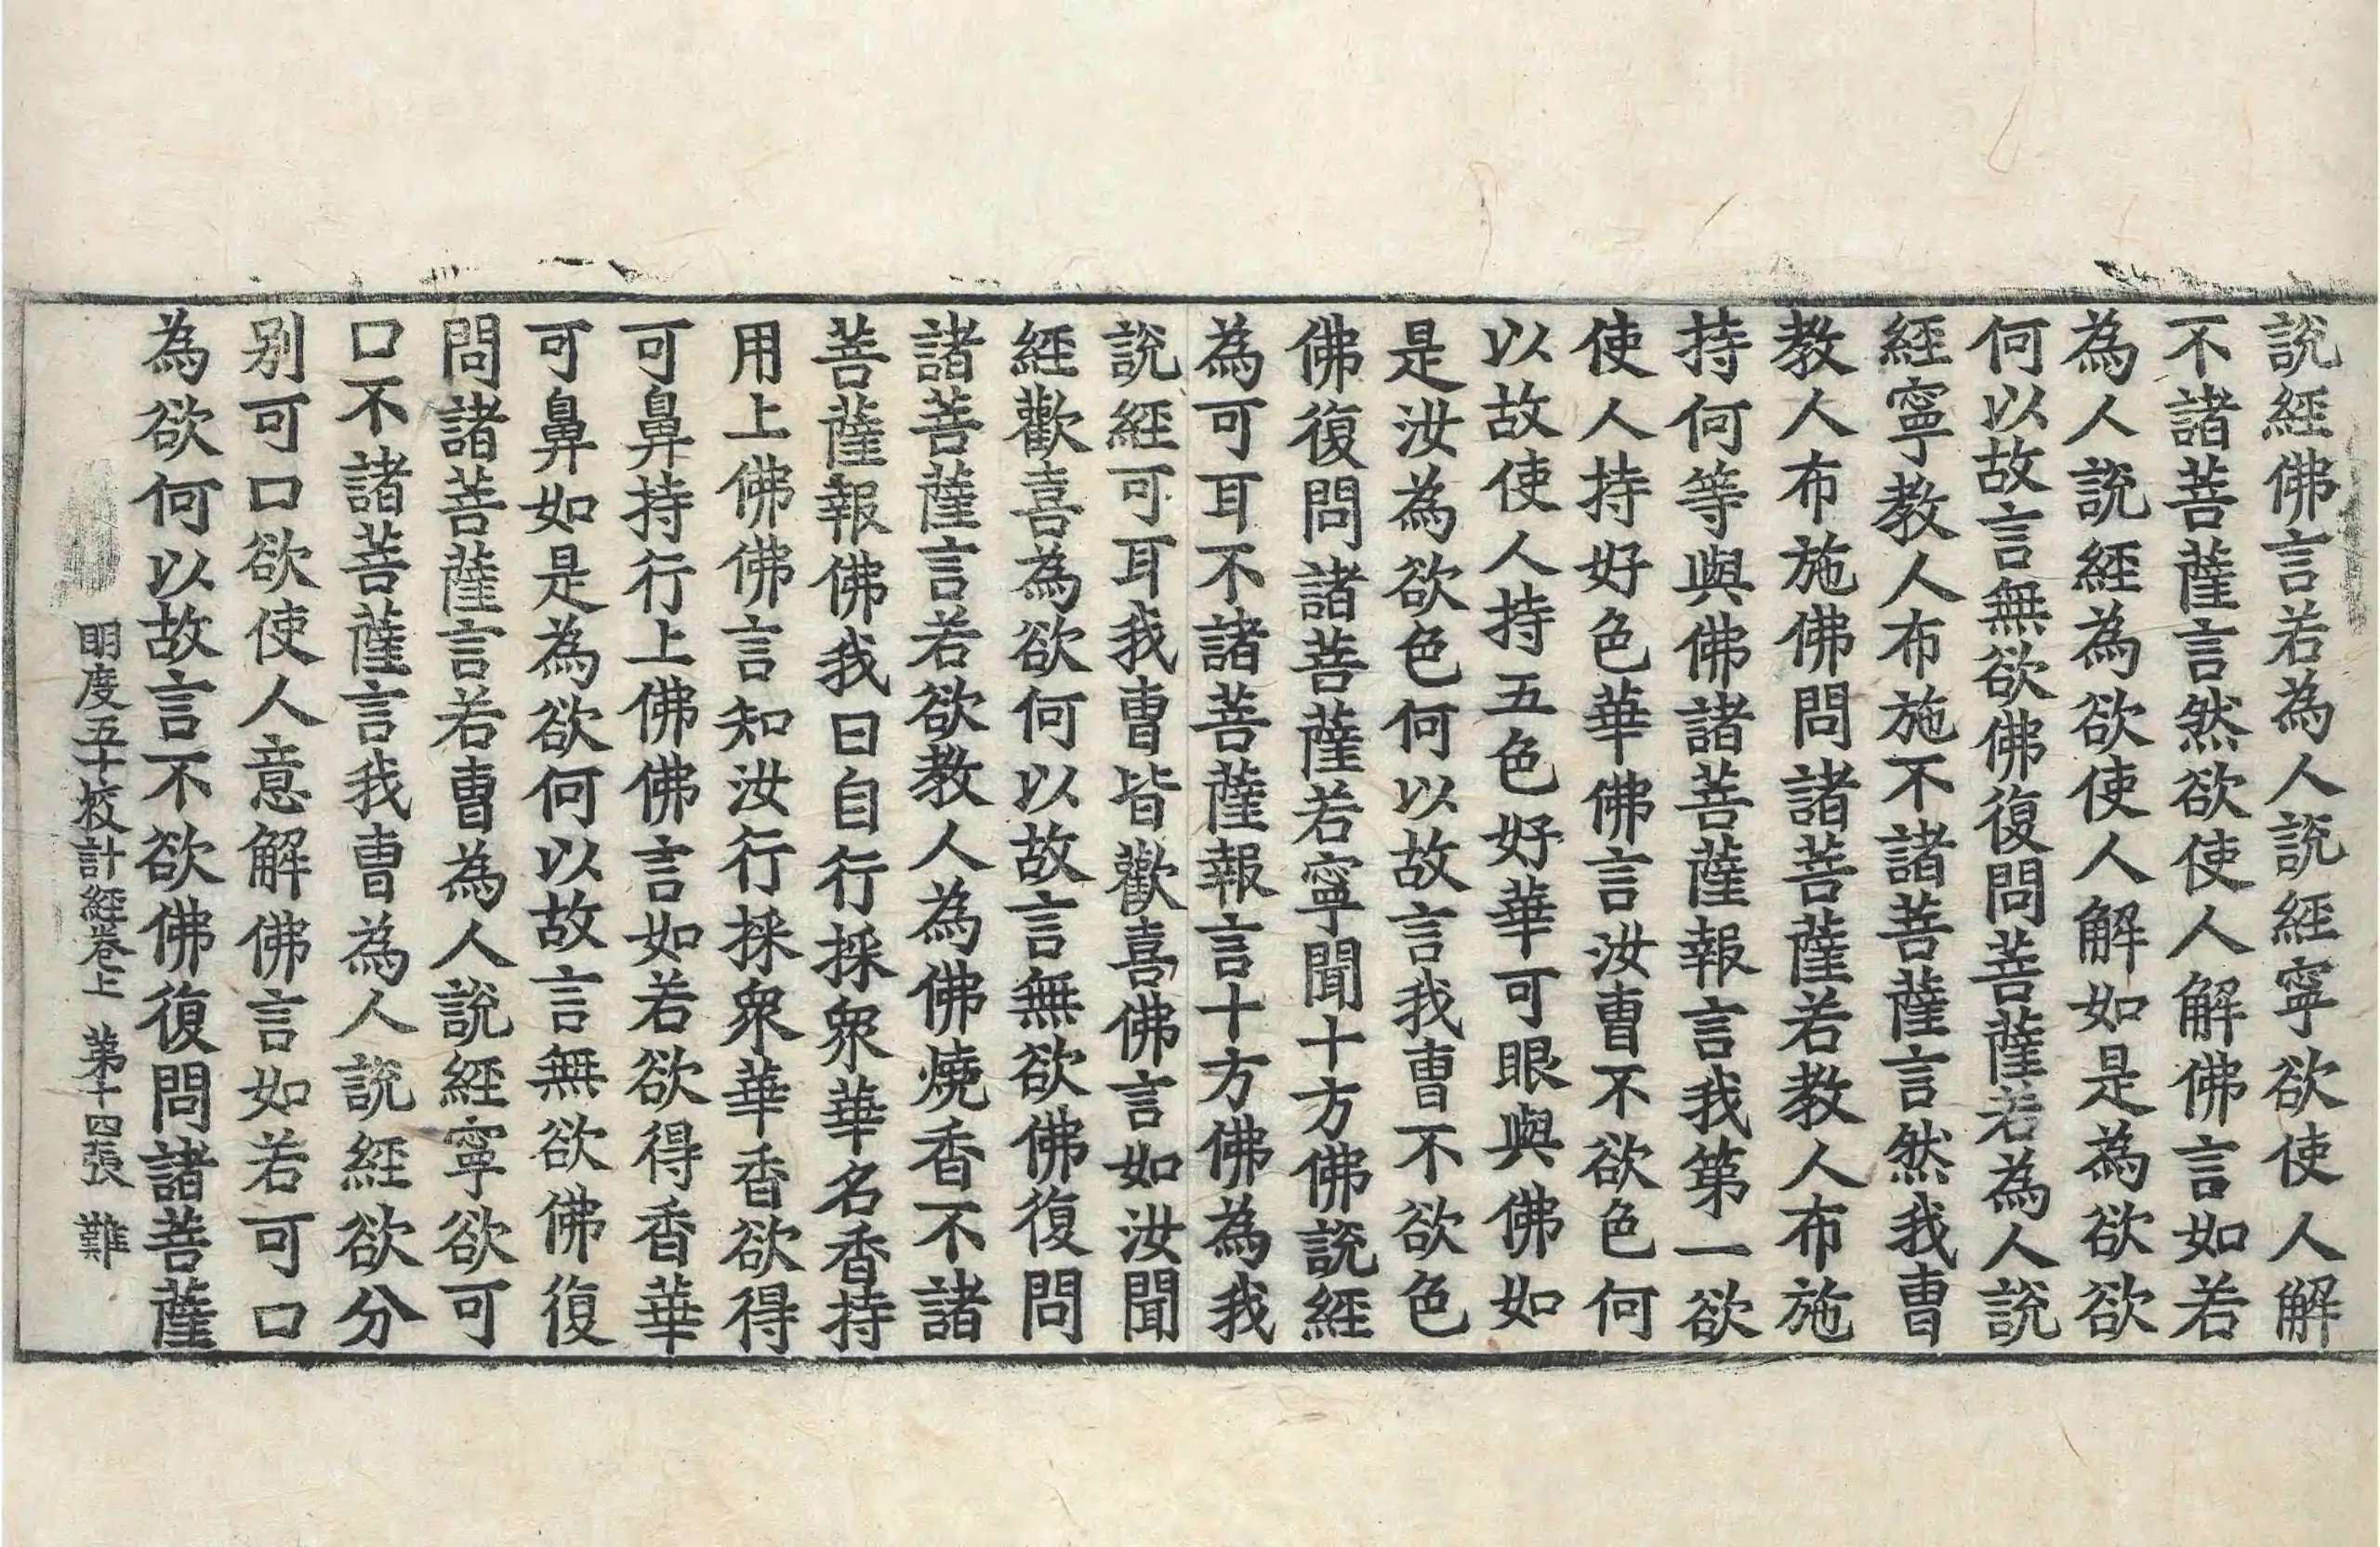 說經佛言若為人說經寧欲使人解
不諸菩薩言然欲使人解佛言如若
為人說經為欲使人解如是為欲欲
何以故言無欲佛復問菩薩若為人說
經寧教人布施不諸菩薩言然我曹
教人布施佛問諸菩薩若教人布施
持何等與佛諸菩薩報言我第一欲
使人持好色華佛言汝曹不欲色何
以故使人持五色好華可眼與佛如
是汝為欲色何以故言我曹不欲色
佛復問諸菩薩若寧聞十方佛說經
為可耳不諸菩薩報言十方佛為我
說經可耳我曹皆歡喜佛言如汝聞
經歡喜為欲何以故言無欲佛復問
諸菩薩言若欲教人為佛燒香不諸
菩薩報佛我曰自行採衆華名香持
用上佛佛言知汝行採衆華香欲得
可鼻持行上佛佛言如若欲得香華
可鼻如是為欲何以故言無欲佛復
問諸菩薩言若曹為人說經寧欲可
口不諸菩薩言我曹為人說經欲分
別可口欲使人意解佛言如若可口
為欲何以故言不欲佛復問諸菩薩
明度五十挍計經卷上 第十四張 難